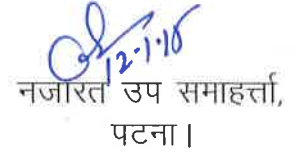 12.1.18
नजारत उप समाहर्त्ता,
पटना।